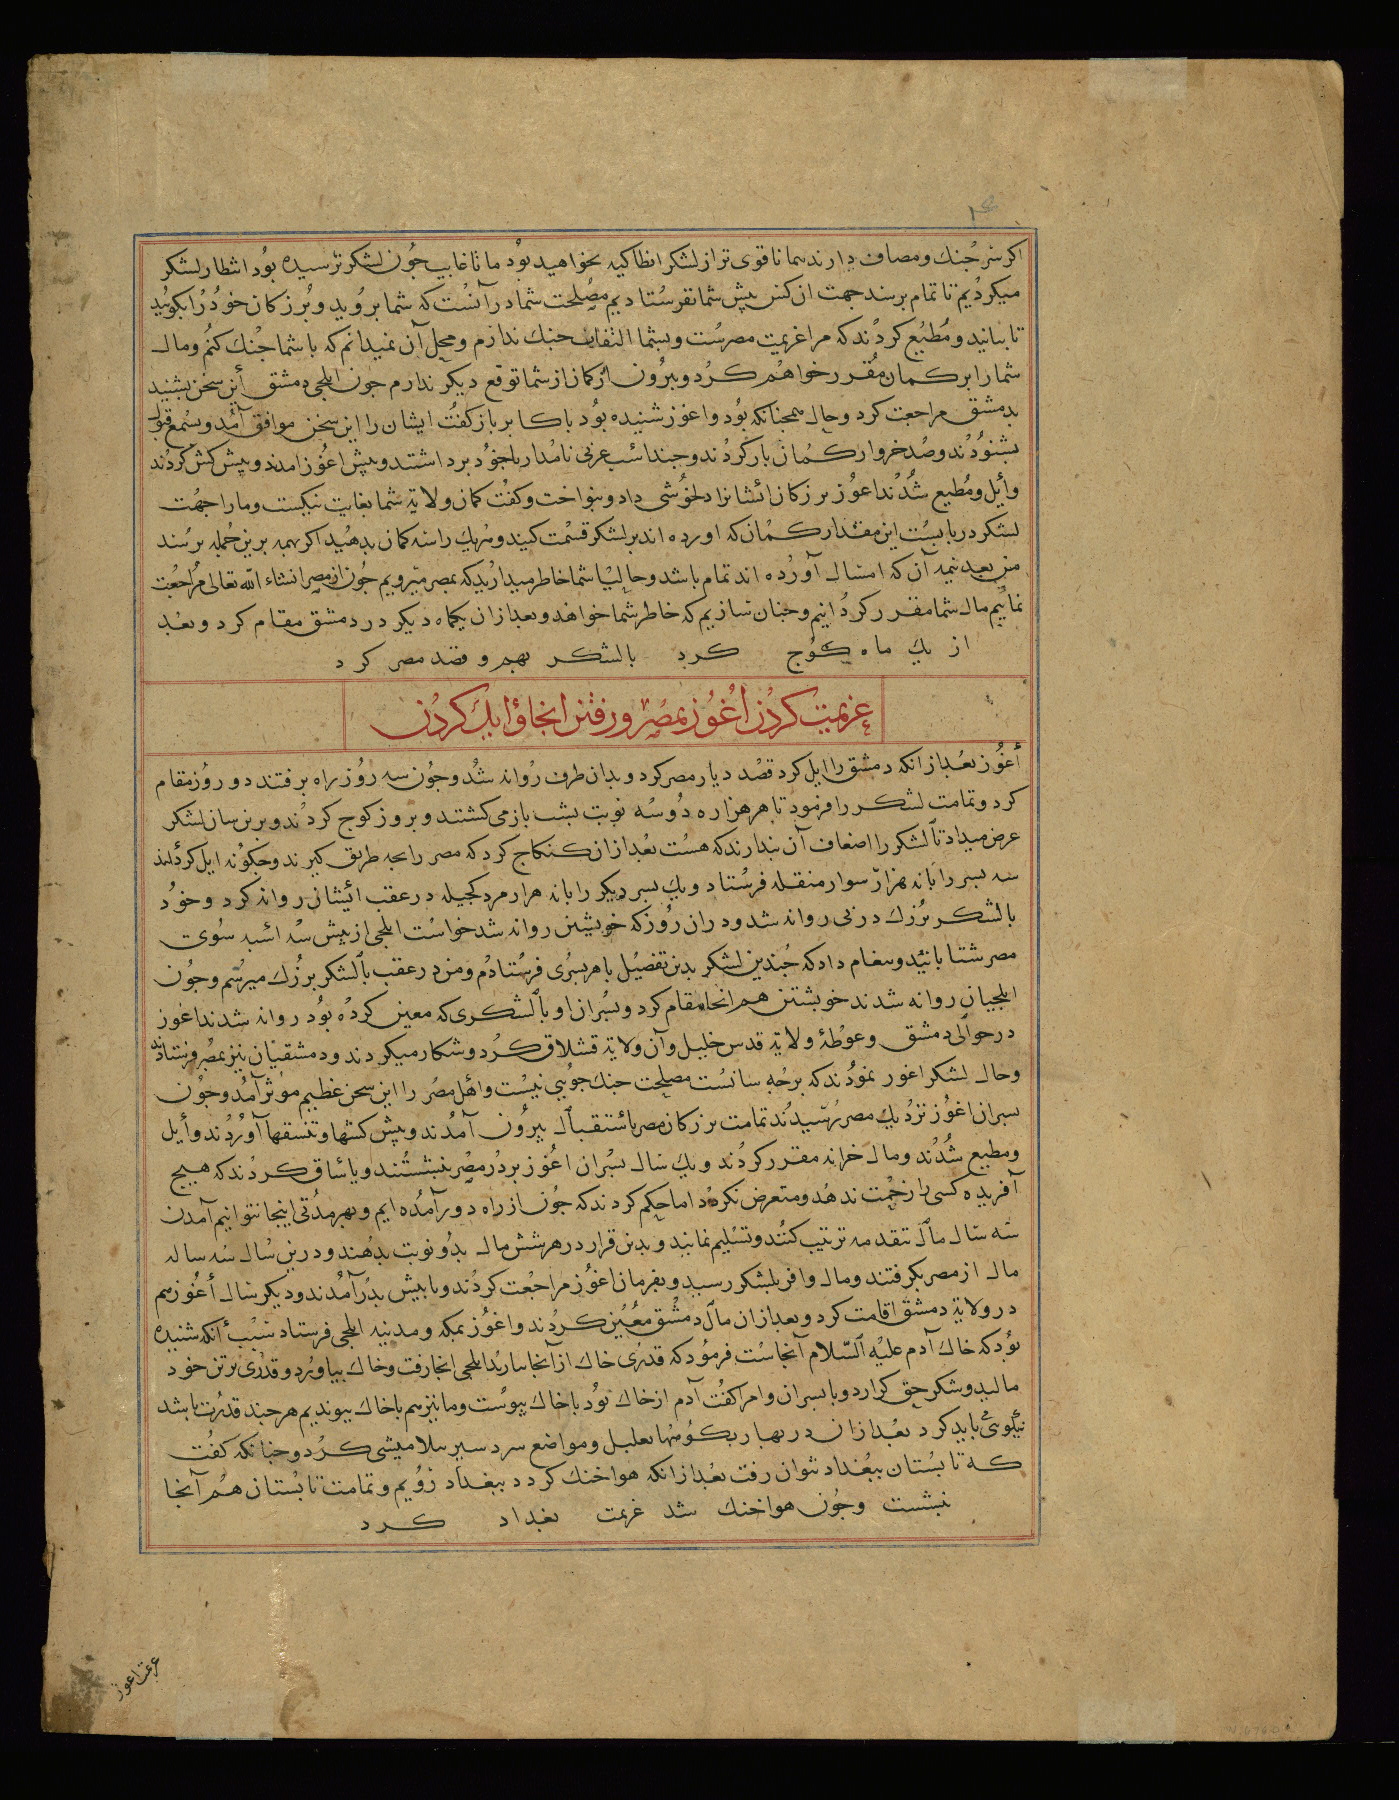 اکر سر جنك ومصاف دارند همانا قوی تر از لشکر انطاکیه نخواهید بود ما تا غایب جون لشکر نرسیده بود انتظار لشکر
میکردیم تا تمام برسند جهت آن کس بیش شما نفرستادیم مصلحت شما در آنست که شما بروید وبزرکان خودرا بکویید
تا بیایند ومطیع کردند که مرا عزیمت مصرست وبشما التفات جنك ندارم ومحل آن نمیدانم که با شما جنك کنم ومال
شما را بر کمان مقرر خواهم کرد وبیرون از کمان از شما توقع دیکر ندارم جون ایلجی دمشق این سخن بشنید
بدمشق مراجعت کرد وحال همجنانکه بود واغوز شنیده بود با کابر باز کفت ایشان را این سخن موافق آمد وبسمع قبول
بشنودند وصد خروار کمان بار کردند وجند اسب عربی نامدار با خود برداشتند وبیش اغوز آمدند وبیش کش کردند
وایل ومطیع شدند اغوز بزرکان ایشانرا دلخوشی داد وبنواخت وکفت کمان ولایة شما بغایت نیکست وما را جهت
لشکر دربایست این مقدار کمان که اورده اند بر لشکر قسمت کنید وهر یك را سه کمان بدهید اکر همه برین جمله برسند
من بعد نیمه آن که امسال آورده اند تمام باشد وحالیا شما خاطر میدارید که بمصر میرویم جون از مصر انشاء الله تعالی مراجعت
نماییم مال شما مقرر کردانیم وجنان سازیم که خاطر شما خواهد وبعد از ان یکماه دیکر در دمشق مقام کرد وبعد
از یك ماه کوج کرد با لشکر بهم وقصد مصر کرد
عزیمت کردن اغوز بمصر ورفتن انجا وایل کردن
أغوز بعد از انکه دمشق را ایل کرد قصد دیار مصر کرد وبدان طرف روانه شد وجون سه روز راه برفتند دو روز مقام
کرد وتمامت لشکر را فرمود تا هر هزاره دو سه نوبت بشب باز می کشتند وبروز کوج کردند وبرین سان لشکر
عرض میداد تا لشکر را اضعاف آن بندارند که هست بعد از ان کنکاج کرد که مصر را بجه طریق کیرند وجکونه ایل کردانند
سه بسر را با نه هزار سوار منقله فرستاد ویك بسر دیکر را با نه هزار مرد کجیله در عقب ایشان روانه کرد وخود
با لشکر بزرك در بی روانه شد ودران روز که خویشتن روانه شد خواست ایلجی از بیش سه اسبه سوی
مصر شتابانید وبیغام داد که جندین لشکر بدین تفصیل با هر بسری فرستادم ومن در عقب با لشکر بزرك میرسم وجون
ایلجیان روانه شدند خویشتن هم انجا مقام کرد وبسران او با لشکری که معین کرده بود روانه شدند اغوز
در حوالی دمشق وغوطه ولایة قدس خلیل وآن ولایة قشلاق کرد وشکار میکردند ودمشقیان نیز بمصر فرستادند
وحال لشکر اغوز نمودند که برجه سانست مصلحت جنك جویی نیست واهل مصر را این سخن عظیم موثر آمد وجون
بسران اغوز نزدیك مصر رسیدند تمامت بزرکان مصر باستقبال بیرون آمدند وبیش کشها وتنسقها آوردند وایل
ومطیع شدند ومال خزانه مقرر کردند ویك سال بسران اغوز بر در مصر بنشستند ویاساق کردند که هیج
آفریده کسی را زحمت ندهد ومتعرض نکردد اما حکم کردند که جون از راه دور آمده ایم وبهر مدتی اینجا نتوانیم آمدن
سه سال مال تقدمه ترتیب کنند وتسلیم نمایند وبدین قرار در هر شش مال بدو نوبت بدهند ودرین سال سه ساله
مال از مصر بکرفتند ومال وافر بلشکر رسید وبفرمان اغوز مراجعت کردند وبا بیش بدر آمدند ودیکر سال أغوز هم
در ولایة دمشق اقامت کرد وبعد از ان مال دمشق معین کردند واغوز بمکه ومدینه ایلجی فرستاد سبب آنکه شنیده
بود که خاك آدم علیه السلام آنجاست فرمود که قدری خاك از آنجا بیارند ایلجی انجا رفت وخاك بیاورد وقدری بر تن خود
مالید وشکر حق کزارد وبا بسران وامرا کفت آدم از خاك بود با خاك بیوست وما نیز هم با خاك بیوندیم هر جند قدرت باشد
نیکویی باید کرد بعد از ان در بهار بکوههای تعلیل ومواضع سردسیر ییلامیشی کرد وجنانکه کفت
که تابستان ببغداد نتوان رفت بعد از انکه هوا خنك کردد ببغداد رویم وتمامت تابستان هم آنجا
بنشست وجون هوا خنك شد عزیمت بغداد کرد
عزیمت اغوز